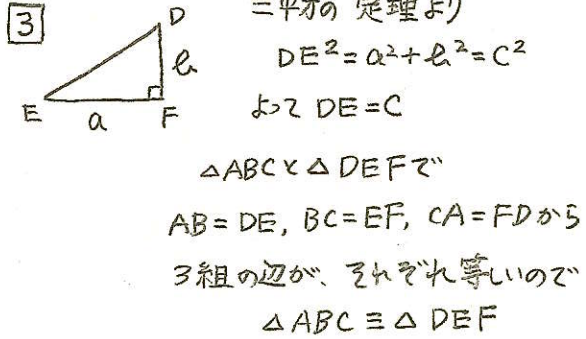 3
三平方の定理より
D
E
F
a
b
DE²=a²+b²=c²
よって DE=C
△ABCと△DEFで
AB=DE, BC=EF, CA=FDから
3組の辺が、それぞれ等しいので
△ABC≡△DEF